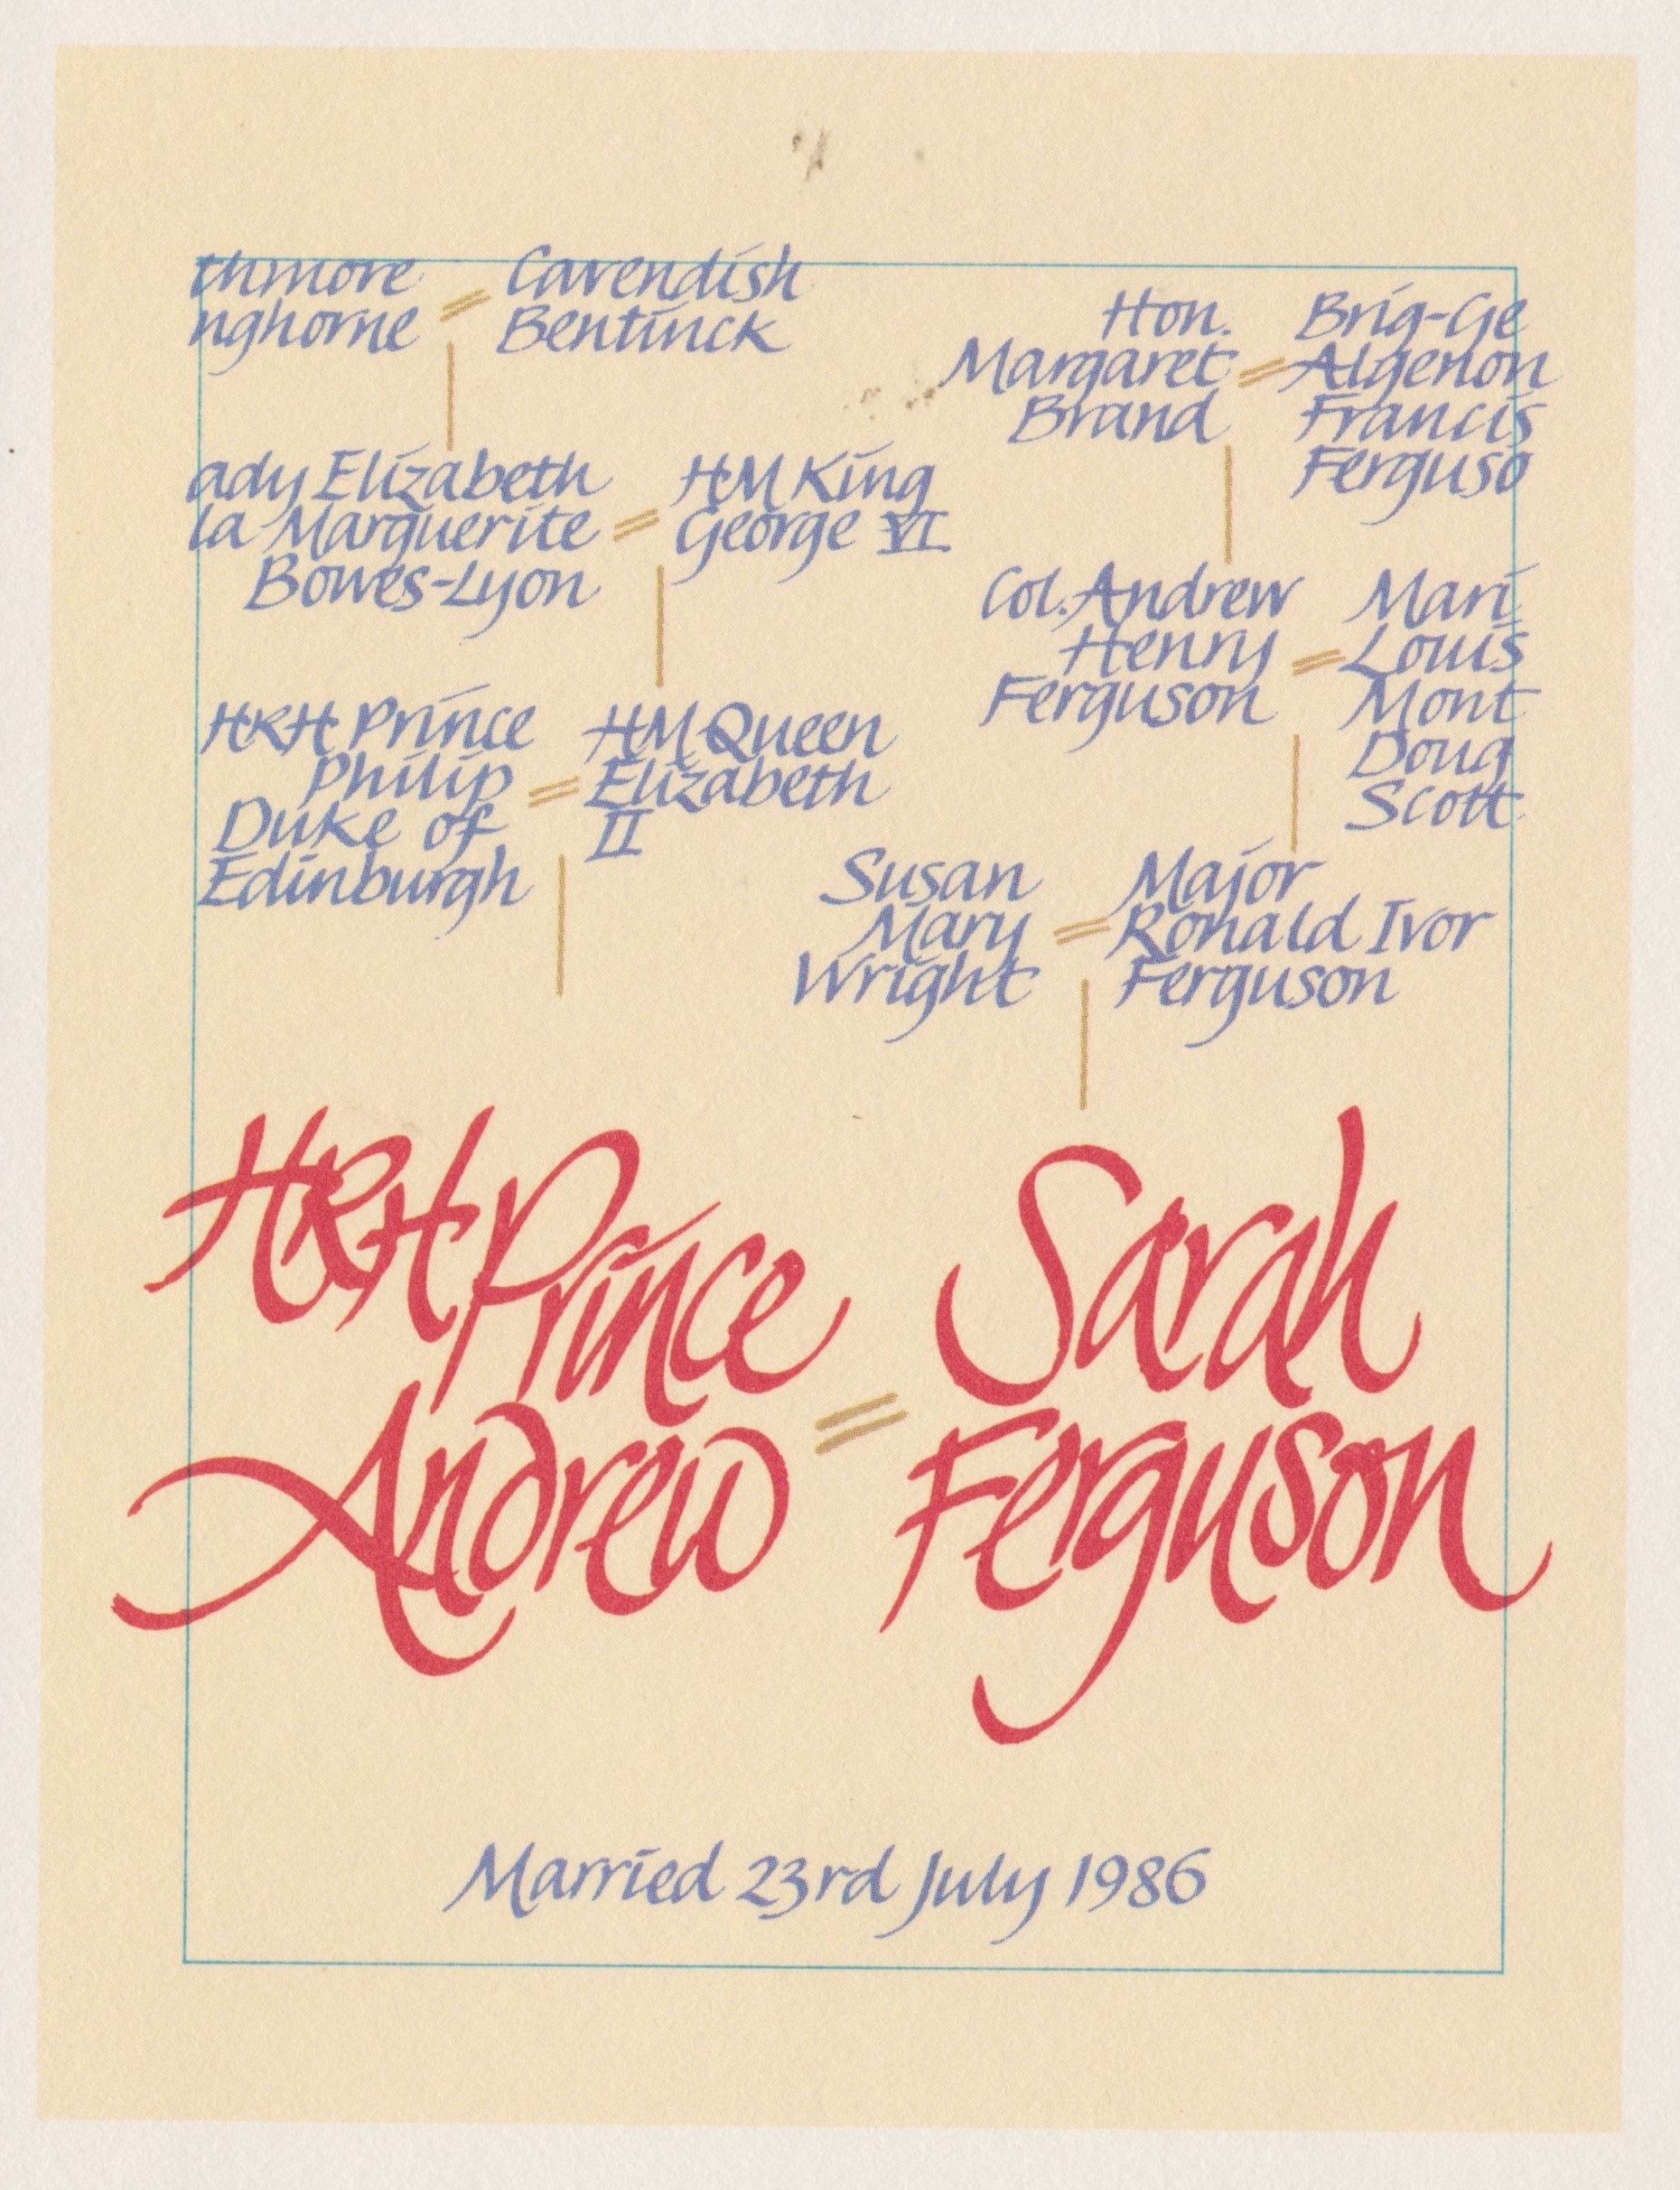 thmore = Cavendish
nghorne Bentinck
Hon.
Margaret
Brand
=
Brig-Ge
Algenon
Francis
Ferguso
ady Elizabeth
la Marguerite
Bowes-Lyon
=
HM King
George VI
Col. Andrew
Henry
Ferguson
=
Mari
Louis
Mont
Doug
Scott
HRH Prince
Philip
Duke of
Edinburgh
=
HM Queen
Elizabeth
II
Susan
Mary
Wright
=
Major
Ronald Ivor
Ferguson
HRH Prince
Andrew
=
Sarah
Ferguson
Married 23rd July 1986